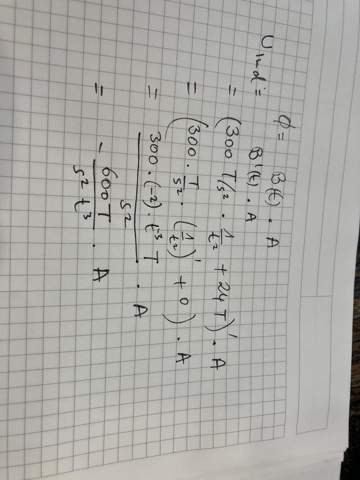 ϕ = B(t) · A
U_ind = B'(t) · A
= (300 T/s² · 1/t² + 24T)' · A
= (300 · T/s² · (1/t²)' + 0) · A
= 300 · (-2) · t⁻³ T / s² · A
= - 600 T / s² t³ · A